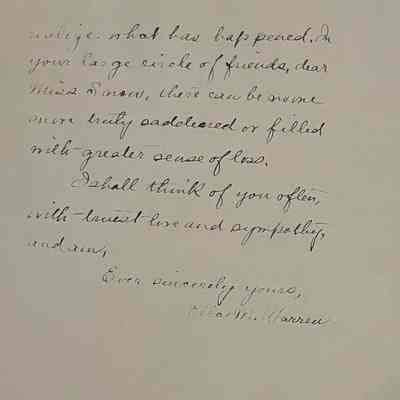 realize what has happened. In
your large circle of friends, dear
Miss Snow, there can be none
more truly saddened or filled
with greater sense of loss.
I shall think of you often,
with truest love and sympathy,
and am,
Ever sincerely yours,
M. Warren